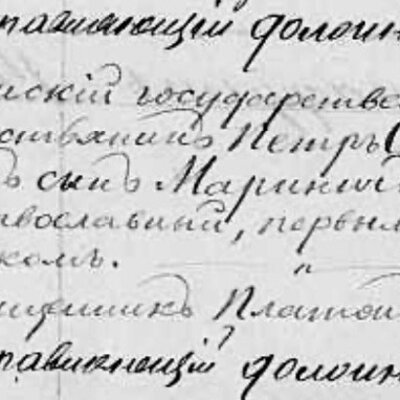 правляющій должн
скій государстве
ствянинъ Петръ С
ъ сынъ Маринич
авославный, первым
комъ. "
щенникъ Платон
правляющій должн